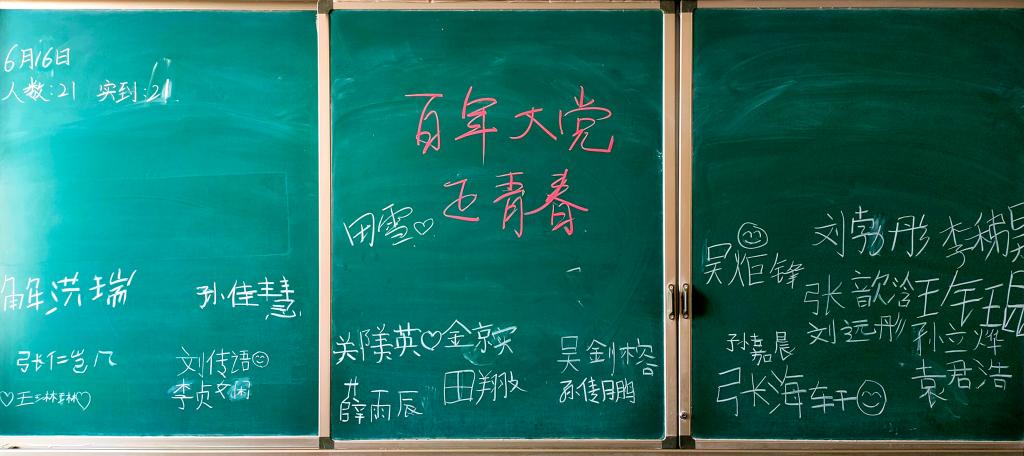 6月16日
人数:21 实到:21
百年大党
正青春
田雪♡
解洪瑞
孙佳慧
张仁岂凡
刘传语
李贞文闲
♡王琳琳♡
关美英♡金京实
薛雨辰
田翔
吴剑榕
孙倩鹏
吴炬锋
刘勃彤
张歆
刘远彤
孙嘉晨
张海车干
孙立烨
袁君浩